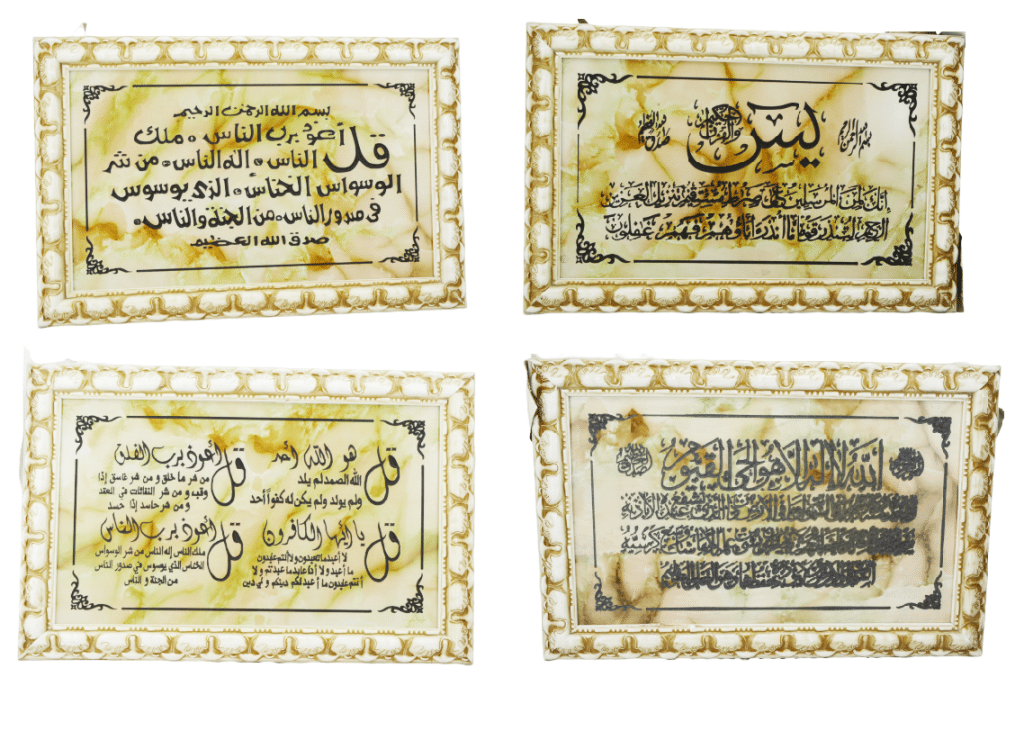 بسم الله الرحمن الرحيم
قل أعوذ برب الناس ملك
الناس اله الناس من شر
الوسواس الخناس الذي يوسوس
في صدور الناس من الجنة والناس
صدق الله العظيم
بسم الله الرحمن الرحيم
يس والقرآن الحكيم
صدق الله العظيم
إنك لمن المرسلين على صراط مستقيم تنزيل العزيز
الرحيم لتنذر قوما ما أنذر آباؤهم فهم غفلون
قل هو الله أحد
الله الصمد لم يلد
ولم يولد ولم يكن له كفوا أحد
قل أعوذ برب الفلق
من شر ما خلق و من شر غاسق إذا
وقب و من شر النفاثات في العقد
و من شر حاسد إذا حسد
قل يا أيها الكافرون
لا أعبد ما تعبدون ولا أنتم عبدون
ما أعبد ولا أنا عابد ما عبدتم ولا
أنتم عبدون ما أعبد لكم دينكم و لي دين
قل أعوذ برب الناس
ملك الناس إله الناس من شر الوسواس
الخناس الذي يوسوس في صدور الناس
من الجنة و الناس
الله لا إله إلا هو الحي القيوم